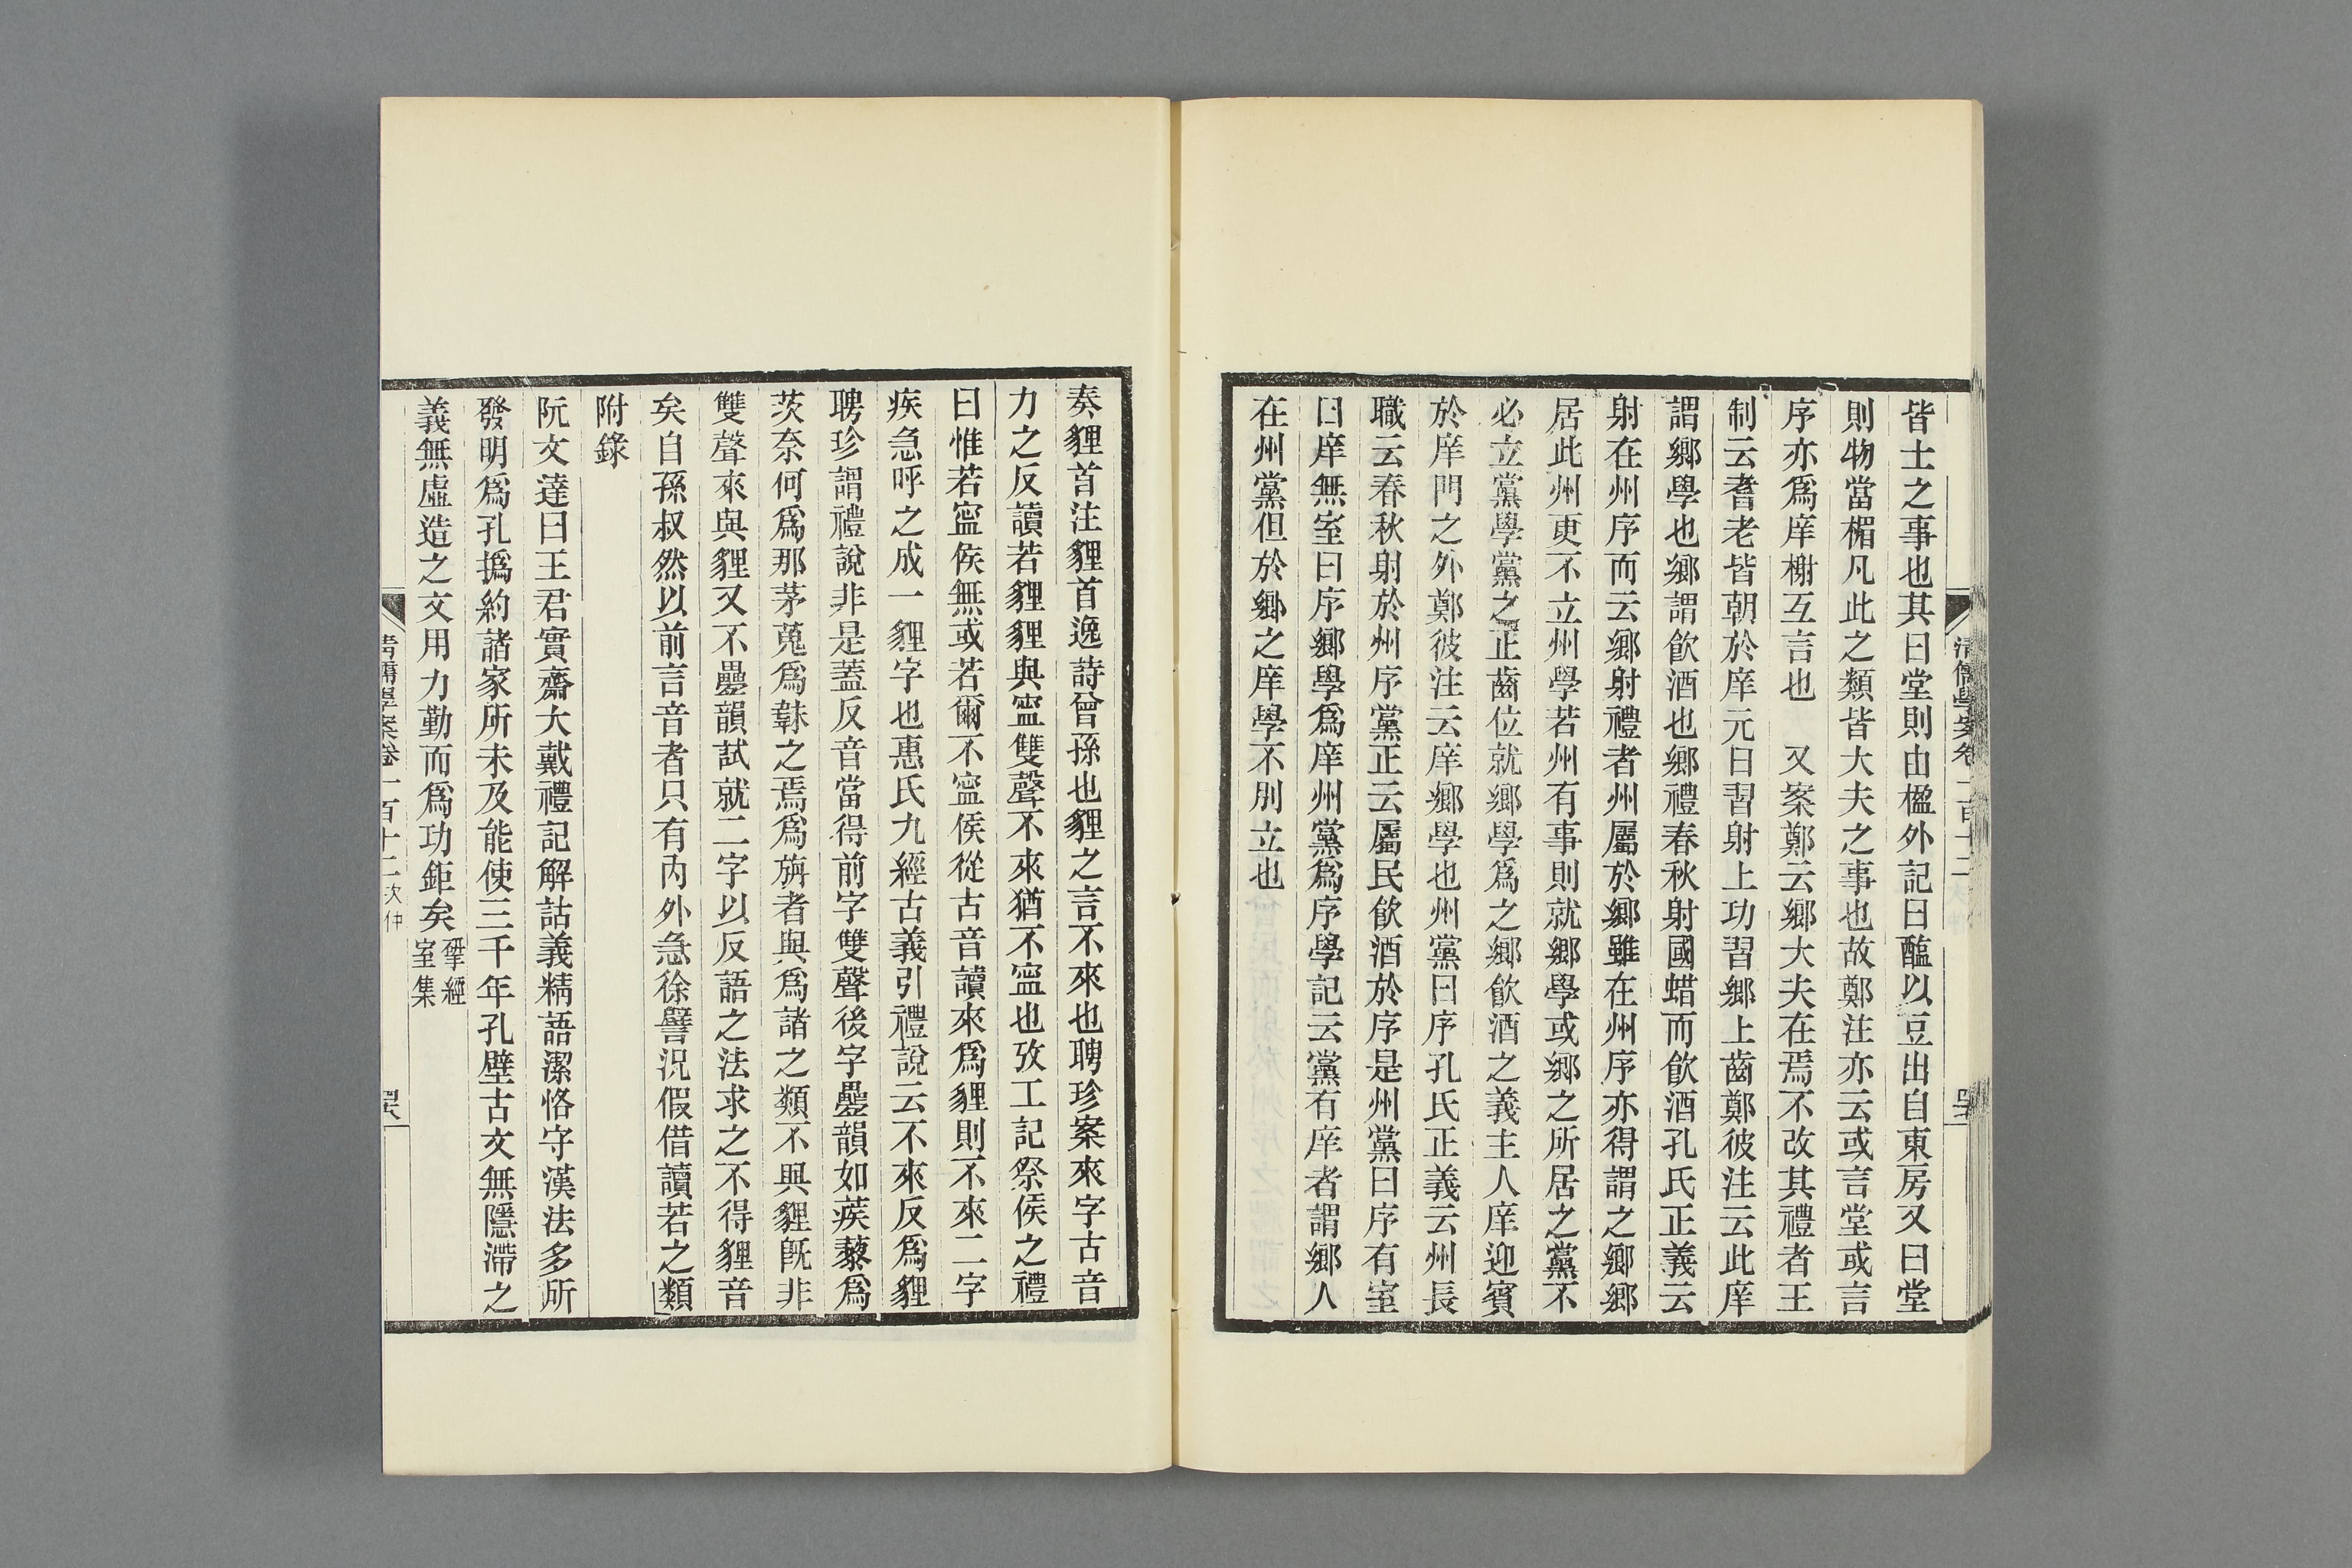 皆士之事也其曰堂則由楹外記曰醢以豆出自東房又曰堂
則物當楣凡此之類皆大夫之事也故鄭注亦云或言堂或言
序亦爲庠榭互言也　又案鄭云鄉大夫在焉不改其禮者王
制云耆老皆朝於庠元日習射上功習鄉上齒鄭彼注云此庠
謂鄉學也鄉謂飮酒也鄉禮春秋射國蜡而飮酒孔氏正義云
射在州序而云鄉射禮者州屬於鄉雖在州序亦得謂之鄉鄉
居此州更不立州學若州有事則就鄉學或鄉之所居之黨不
必立黨學黨之正齒位就鄉學爲之鄉飮酒之義主人庠迎賓
於庠門之外鄭彼注云庠鄉學也州黨曰序孔氏正義云州長
職云春秋射於州序黨正云屬民飮酒於序是州黨曰序有室
曰庠無室曰序鄉學爲庠州黨爲序學記云黨有庠者謂鄉人
在州黨但於鄉之庠學不別立也
清儒學案卷一百十二
奏貍首注貍首逸詩曾孫也貍之言不來也聘珍案來字古音
力之反讀若貍貍與寍雙聲不來猶不寍也攷工記祭侯之禮
曰惟若寍侯無或若爾不寍侯從古音讀來爲貍則不來二字
疾急呼之成一貍字也惠氏九經古義引禮說云不來反爲貍
聘珍謂禮說非是蓋反音當得前字雙聲後字疊韻如蒺藜爲
茨奈何爲那茅蒐爲韎之焉爲旃者與爲諸之類不與貍旣非
雙聲來與貍又不疊韻試就二字以反語之法求之不得貍音
矣自孫叔然以前言音者只有內外急徐譬況假借讀若之類
附錄
阮文達曰王君實齋大戴禮記解詁義精語潔恪守漢法多所
發明爲孔撝約諸家所未及能使三千年孔壁古文無隱滯之
義無虛造之文用力勤而爲功鉅矣揅經室集
清儒學案卷一百十二 次仲